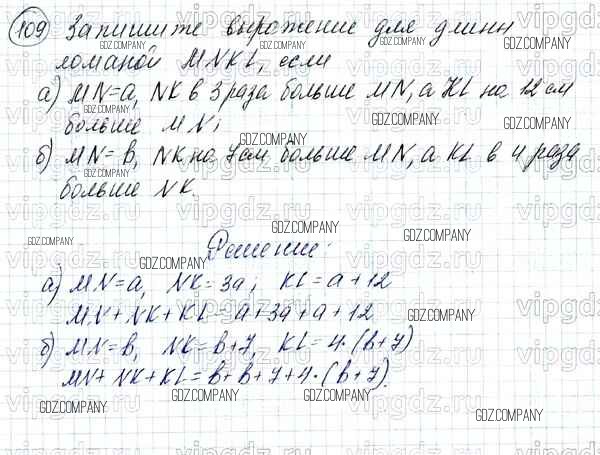 109 Запишите выражение для длины
ломаной MNKL, если
а) MN=a, NK в 3 раза больше MN, а KL на 12 см
больше MN;
б) MN=b, NK на 7см больше MN, а KL в 4 раза
больше NK.
Решение:
а) MN=a, NK=3a; KL=a+12
MN+NK+KL=a+3a+a+12
б) MN=b, NK=b+7, KL=4·(b+7)
MN+NK+KL=b+b+7+4·(b+7).
vipgdz.ru
GDZ.COMPANY